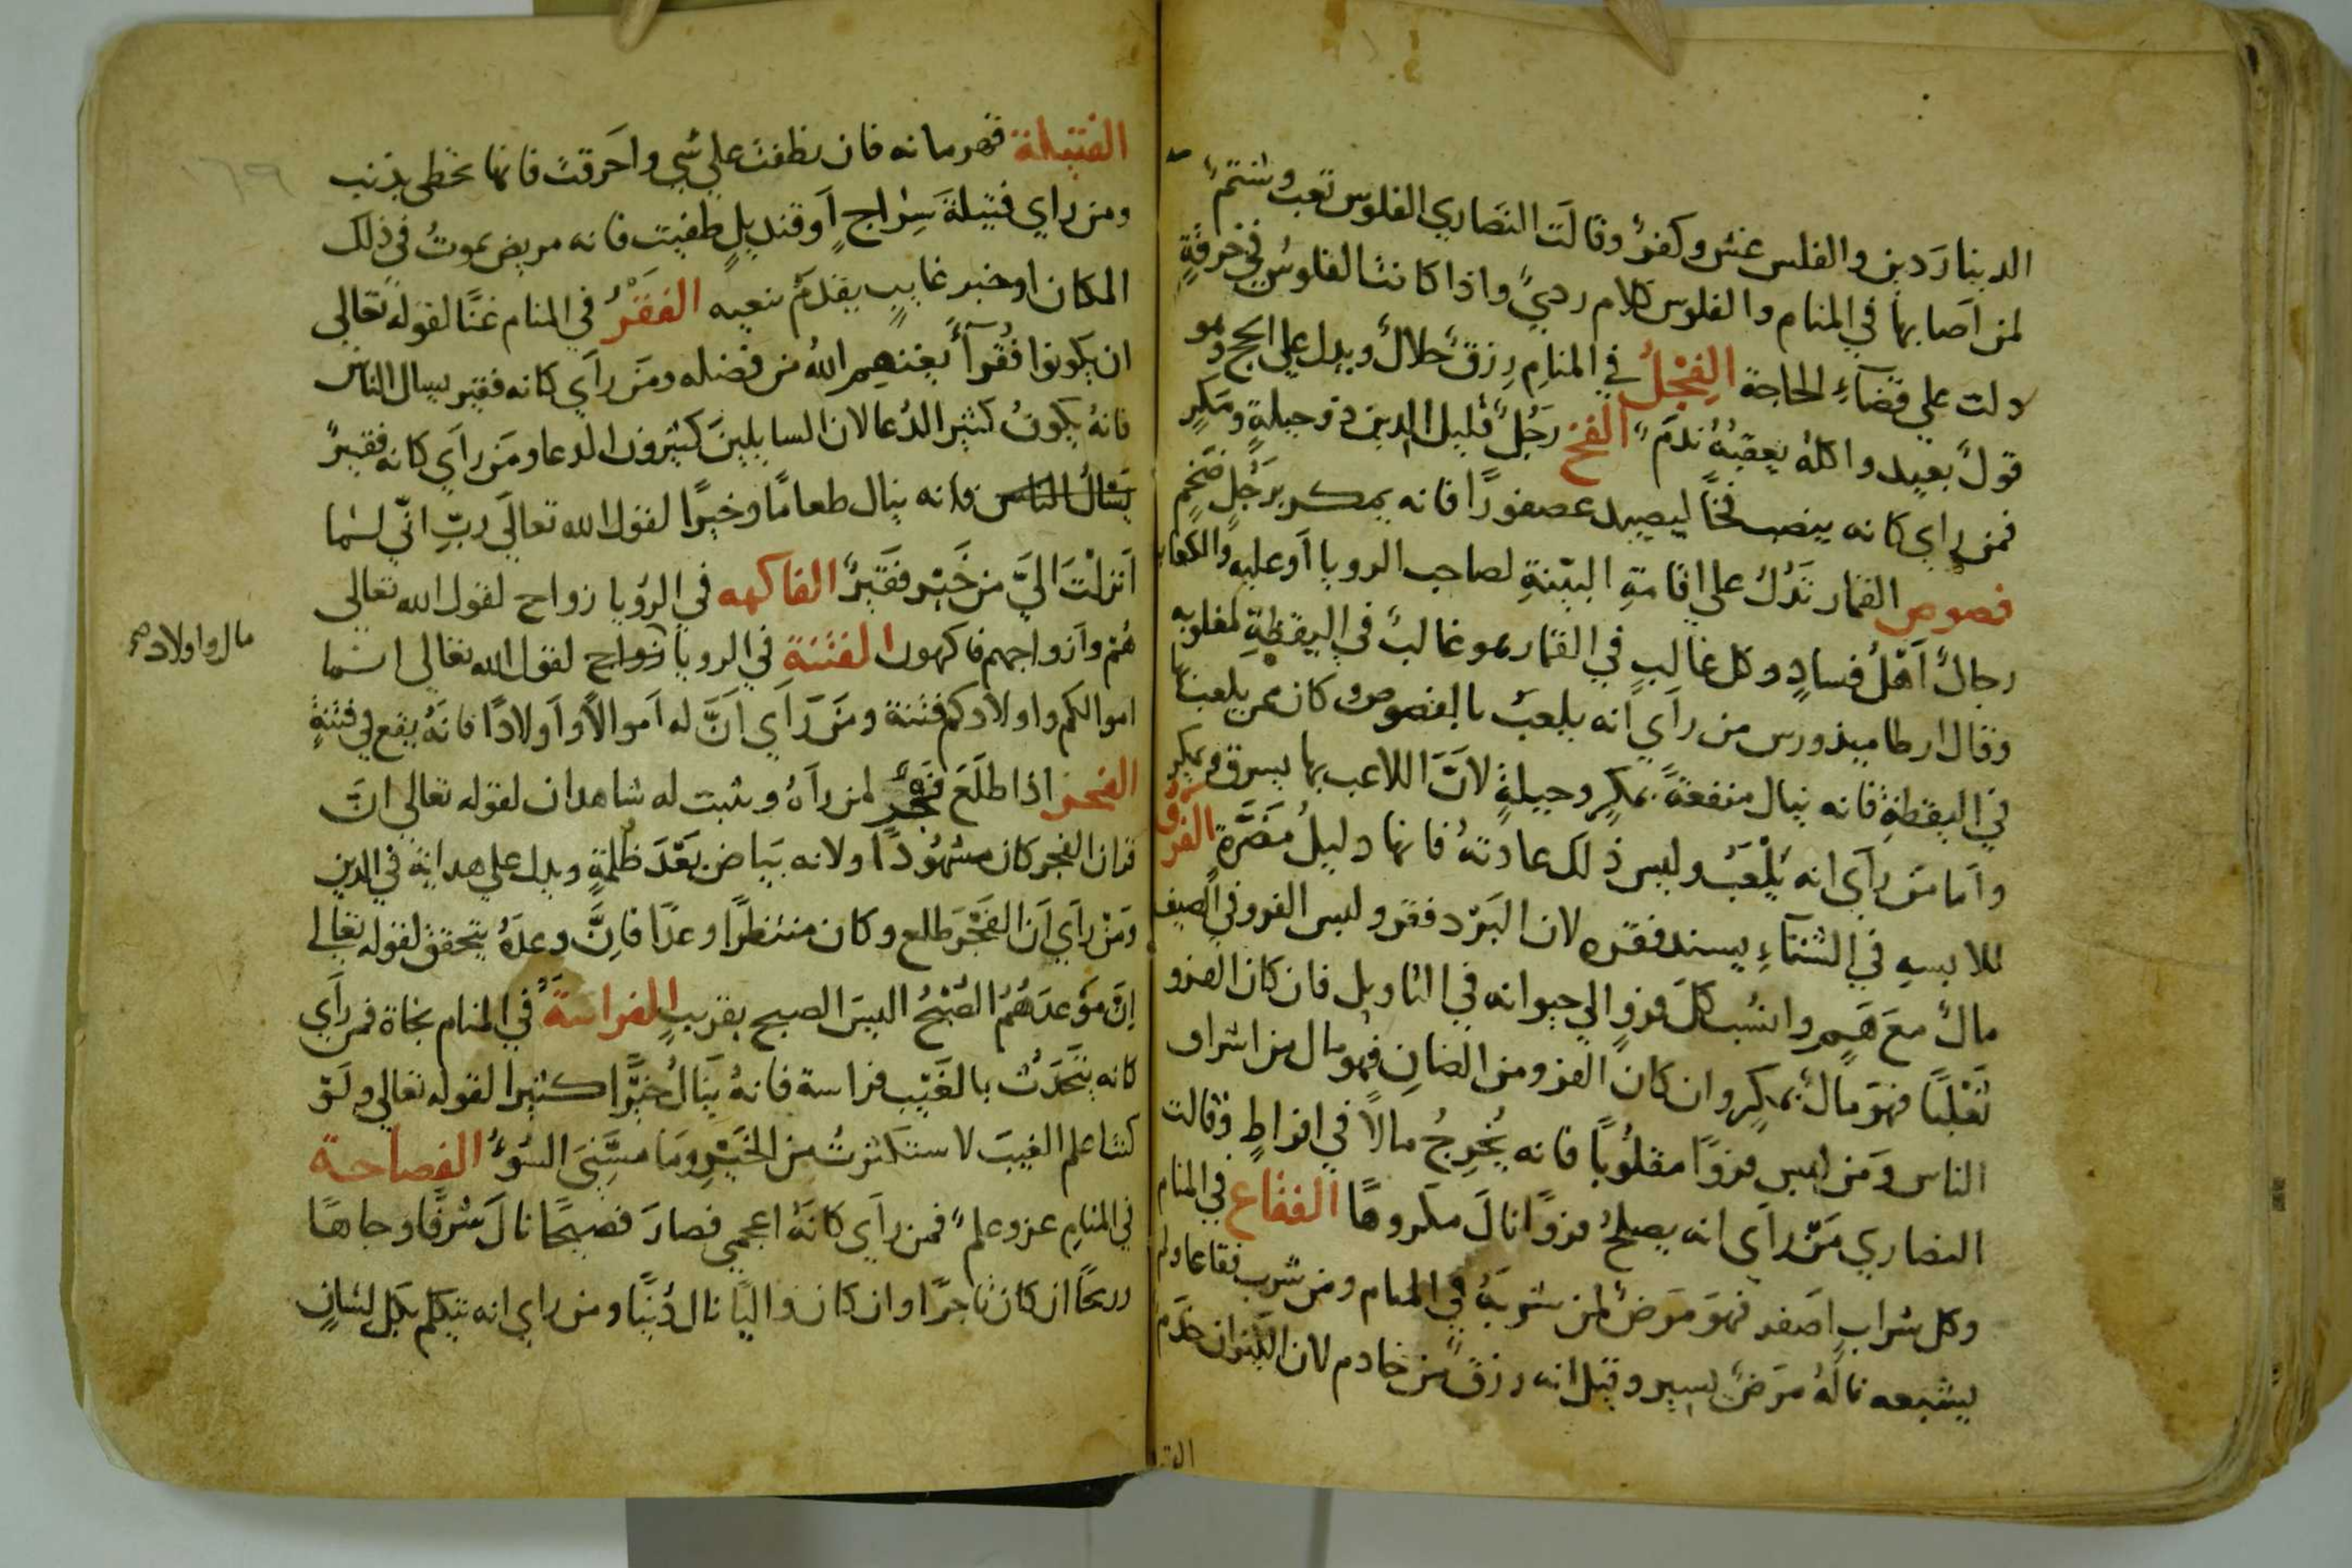 الدينار دين والفلس غش وكفر وقالت النصاري الفلوس تعب وشتم
لمن اصابها في المنام والفلوس كلام ردي واذا كانت الفلوس في خرقة
دلت علي قضاء الحاجة الفجل في المنام رزق حلال ويدل علي الحج وهو
قول بعيد واكله يعقبه ندم الفخ رجل قليل الدين ذو حيلة ومكر
فمن راي كانه ينصب فخا ليصيد عصفورا فانه يمكر برجل ضخم
فصوص القمار تدل علي اقامة البينة لصاحب الرويا او عليه والكعاب
رجال اهل فساد وكل غالب في القمار هو غالب في اليقظة لمغلوبه
وقال ارطاميذورس من راي انه يلعب بالفصوص وكان ممن يلعب بها
في اليقظة فانه ينال منفعة بمكر وحيلة لان اللاعب بها يسرق ويمكر
واما من راي انه يلعب وليس ذلك عادته فانها دليل مضرة الفرو
للابسه في الشتاء يسند فقره لان البرد فقر ولبس الفرو في الصيف
مال مع هم وانسب كل فرو الي حيوانه في التاويل فان كان الفرو
ثعلبا فهو مال بمكر وان كان الفرو من الضان فهو مال من اشراف
الناس ومن لبس فروا مقلوبا فانه يخرج مالا في افراط وقالت
النصاري من راي انه يصلح فروا نال مكروها الفقاع في المنام
وكل شراب اصفر فهو مرض لمن شربه في المنام ومن شرب فقاعا ولم
يشبعه ناله مرض يسير وقيل انه رزق من خادم لان الكيزان خدم
الفتيلة قهرمانه فان نطفت علي شي واحرقت فانها تخطي بذنب
ومن راي فتيلة سراج او قنديل طفيت فانه مريض يموت في ذلك
المكان او خبر غايب يقدم بنعيه الفقر في المنام غنا لقوله تعالي
ان يكونوا فقرآء يغنهم الله من فضله ومن راي كانه فقير يسال الناس
فانه يكون كثير الدعا لان السايلين كثيرون الدعا ومن راي كانه فقير
يسال الناس فانه ينال طعاما وخيرا لقول الله تعالي رب اني لما
انزلت الي من خير فقير الفاكهه في الرويا زواج لقول الله تعالي
هم وازواجهم فاكهون الفتنة في الرويا زواج لقول الله تعالي انما
مال واولاد صح
اموالكم واولادكم فتنة ومن راي ان له اموالا واولادا فانه يقع في فتنة
الفجر اذا طلع فجر لمن رآه ويثبت له شاهدان لقوله تعالي ان
قران الفجر كان مشهودا ولانه بياض بعد ظلمة ويدل علي هداية في الدين
ومن راي ان الفجر طلع وكان منتظرا وعدا فان وعده يتحقق لقوله تعالي
ان موعدهم الصبح اليس الصبح بقريب الفراسة في المنام نجاة فمن راي
كانه يتحدث بالغيب فراسة فانه ينال خيرا كثيرا لقوله تعالي ولو
كنت اعلم الغيب لاستكثرت من الخير وما مسني السوء الفصاحة
في المنام عز وعلم فمن راي كانه اعجمي فصار فصيحا نال شرفا وجاها
وربحا ان كان تاجرا وان كان واليا نال دنيا ومن راي انه يتكلم بكل لسان